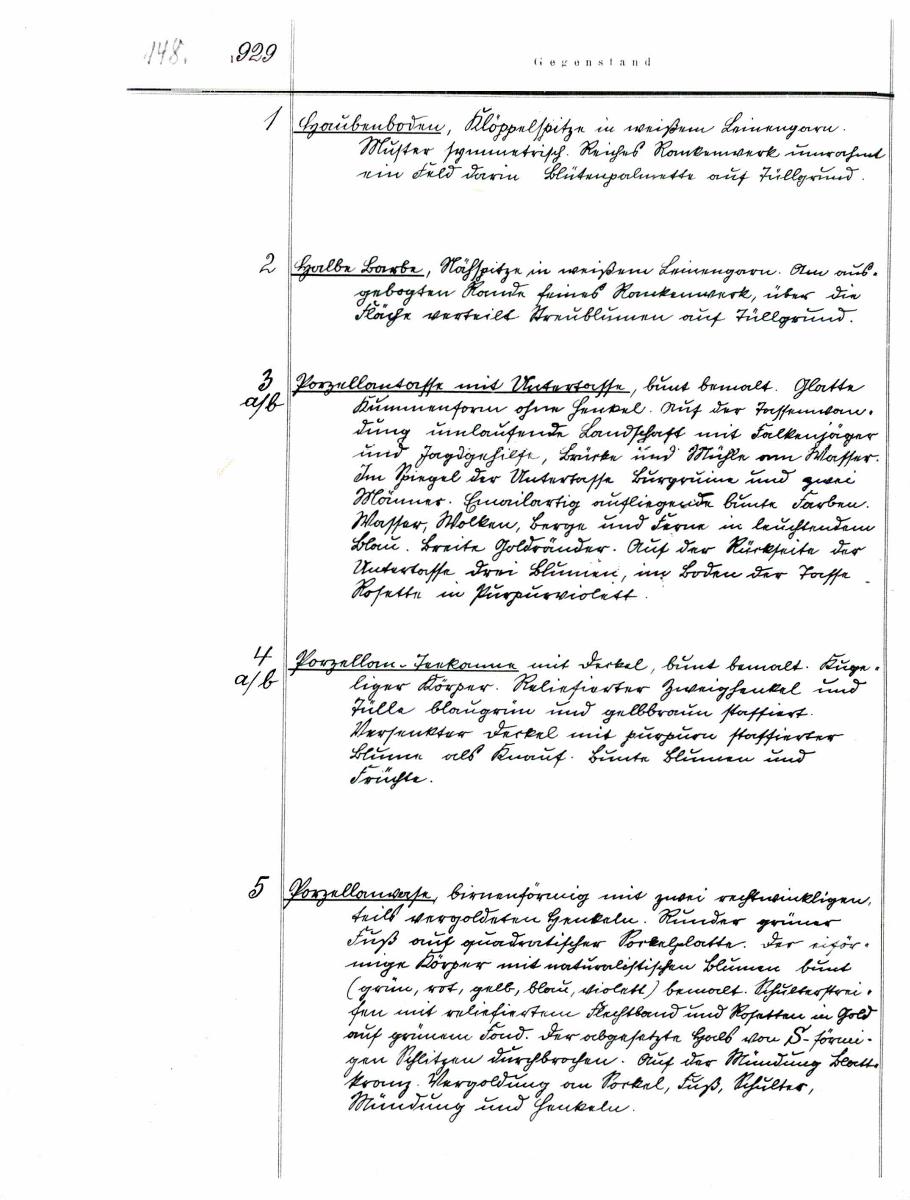 148. 1929 Gegenstand
1 Haubenboden, Klöppelspitze in weißem Leinengarn.
Muster symmetrisch. Reiches Rankenwerk umrahmt
ein Feld darin Blütenpalmette auf Tüllgrund.
2 Halbe Barbe, Nähspitze in weißem Leinengarn. Am aus-
gebogten Rande feines Rankenwerk, über die
Fläche verteilt Streublumen auf Tüllgrund.
3 Porzellantasse mit Untertasse, bunt bemalt. Glatte
a/b Kummenform ohne Henkel. Auf der Tassenwan-
dung umlaufende Landschaft mit Falkenjäger
und Jagdgehilfe, Brücke und Mühle am Wasser.
Im Spiegel der Untertasse Burgruine und zwei
Männer. Emailartig aufliegende bunte Farben.
Wasser, Wolken, Berge und Ferne in leuchtendem
Blau. Breite Goldränder. Auf der Rückseite der
Untertasse drei Blumen, im Boden der Tasse
Rosette in Purpurviolett.
4 Porzellan-Teekanne mit Deckel, bunt bemalt. Kuge-
a/b liger Körper. Reliefierter Zweighenkel und
Tülle blaugrün und gelbbraun staffiert.
Versenkter Deckel mit purpurn staffierter
Blume als Knauf. Bunte Blumen und
Früchte.
5 Porzellanvase, birnenförmig mit zwei rechtwinkligen,
teils vergoldeten Henkeln. Runder grüner
Fuß auf quadratischer Sockelplatte. Der eiför-
mige Körper mit naturalistischen Blumen bunt
(grün, rot, gelb, blau, violett) bemalt. Schulterstrei-
fen mit reliefiertem Flechtband und Rosetten in Gold
auf grünem Fond. Der abgesetzte Hals von S-förmi-
gen Schlitzen durchbrochen. Auf der Mündung Blatt-
kranz. Vergoldung an Sockel, Fuß, Schulter,
Mündung und Henkeln.